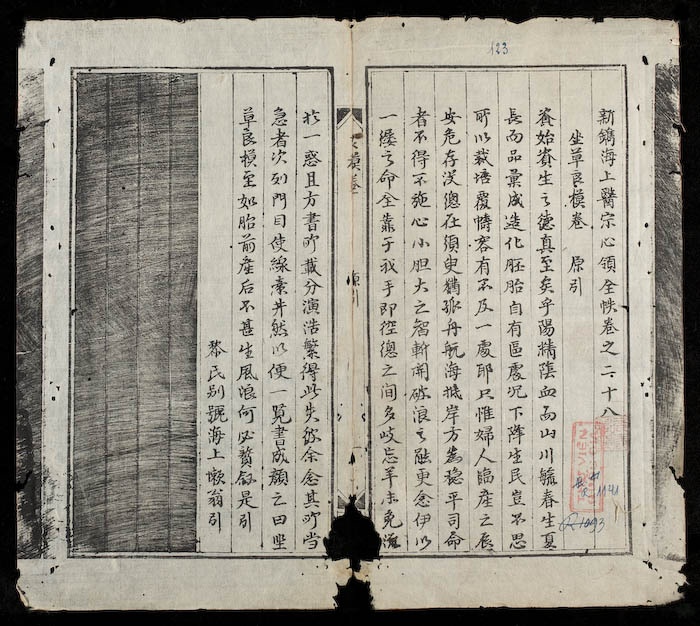 123
新鐫海上醫宗心領全帙卷之二十八
坐草良模卷　原引
資始資生之德真至矣乎陽精陰血而山川毓春生夏
長而品彙成造化胚胎自有區處况下降生民豈不思
所以栽培覆幬容有不及一處耶只惟婦人臨產之辰
安危存没總在須臾猶孤舟航海抵岸方為穩平司命
者不得不施心小胆大之智斬開破浪之
更念伊以
一縷之命全靠于我手即倥傯之間多岐忘羊未免滋
於一惑且方書所載分演浩繁得此失彼余愈其所當
急者次列門目使線索井然以便一覽書成顏之曰坐
草良模至如胎前產后不甚生風浪何必贅敘是引
黎氏別號海上懶翁引
1141